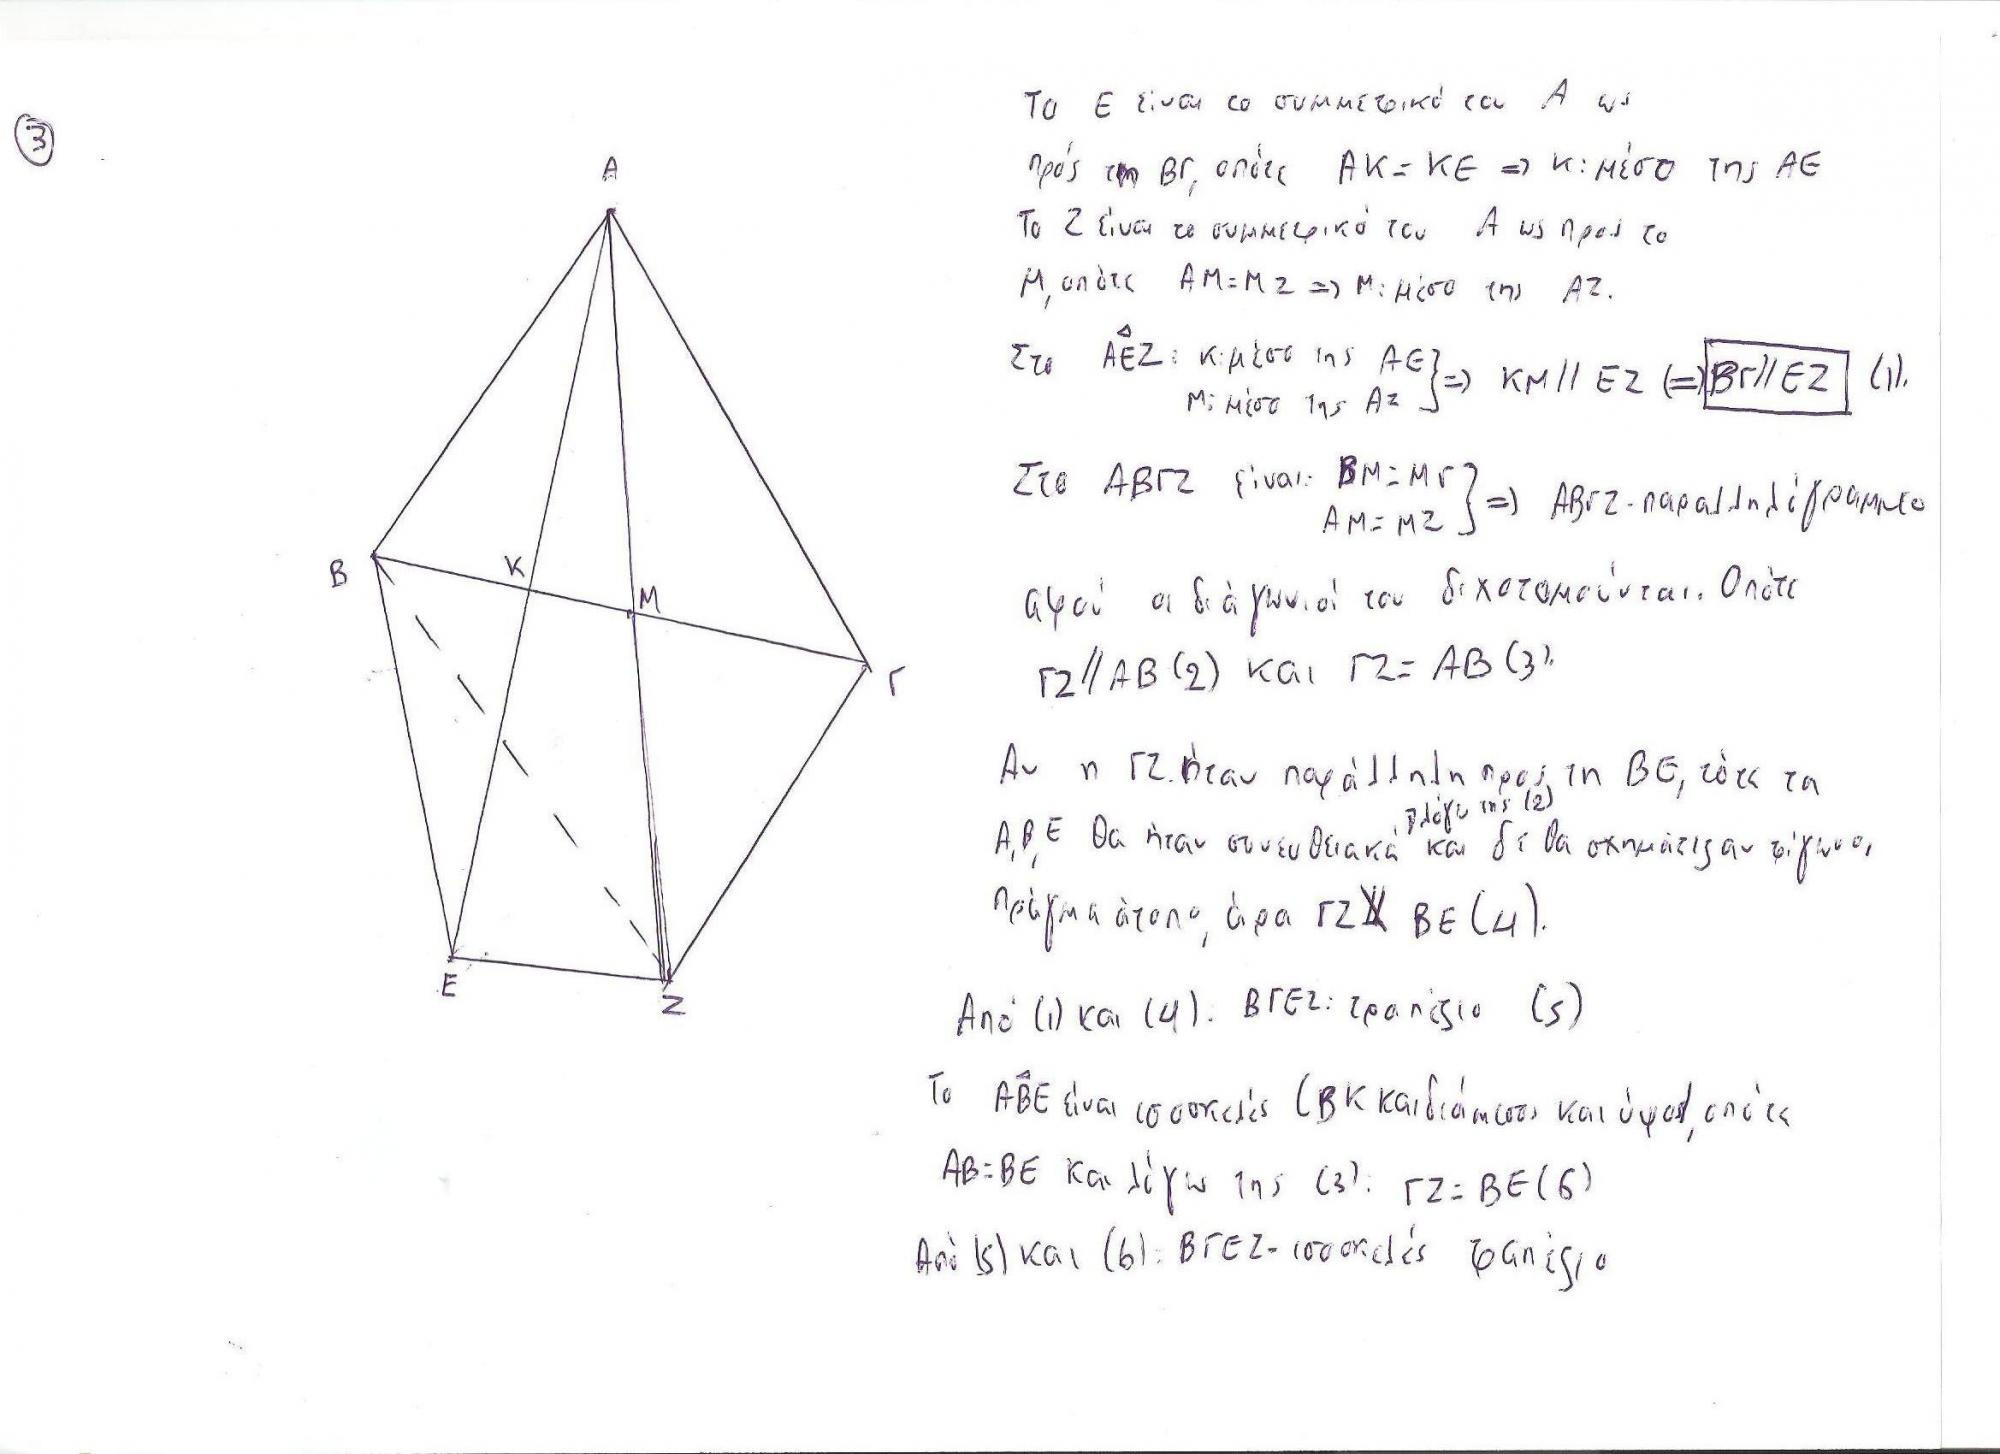 3
Α
Β
Κ
Μ
Γ
Ε
Ζ
Το Ε είναι το συμμετρικό του Α ως
προς τη ΒΓ, οπότε ΑΚ = ΚΕ => Κ: μέσο της ΑΕ
Το Ζ είναι το συμμετρικό του Α ως προς το
Μ, οπότε ΑΜ = ΜΖ => Μ: μέσο της ΑΖ.
Στο ΑΕΖ: Κ: μέσο της ΑΕ
Μ: μέσο της ΑΖ } => ΚΜ // ΕΖ (=) ΒΓ // ΕΖ (1).
Στο ΑΒΓΖ είναι: ΒΜ = ΜΓ
ΑΜ = ΜΖ } => ΑΒΓΖ - παραλληλόγραμμο
αφού οι διάγωνιοί του διχοτομούνται. Οπότε
ΓΖ // ΑΒ (2) και ΓΖ = ΑΒ (3).
Αν η ΓΖ ήταν παράλληλη προς τη ΒΕ, τότε τα
λόγω της (2)
Α, Β, Ε θα ήταν συνευθειακά και δε θα σχημάτιζαν τρίγωνο,
πράγμα άτοπο, άρα ΓΖ ∦ ΒΕ (4).
Από (1) και (4): ΒΓΕΖ: τραπέζιο (5)
Το ΑΒΕ είναι ισοσκελές (ΒΚ και διάμεσος και ύψος), οπότε
ΑΒ = ΒΕ και λόγω της (3): ΓΖ = ΒΕ (6)
Από (5) και (6): ΒΓΕΖ - ισοσκελές τραπέζιο